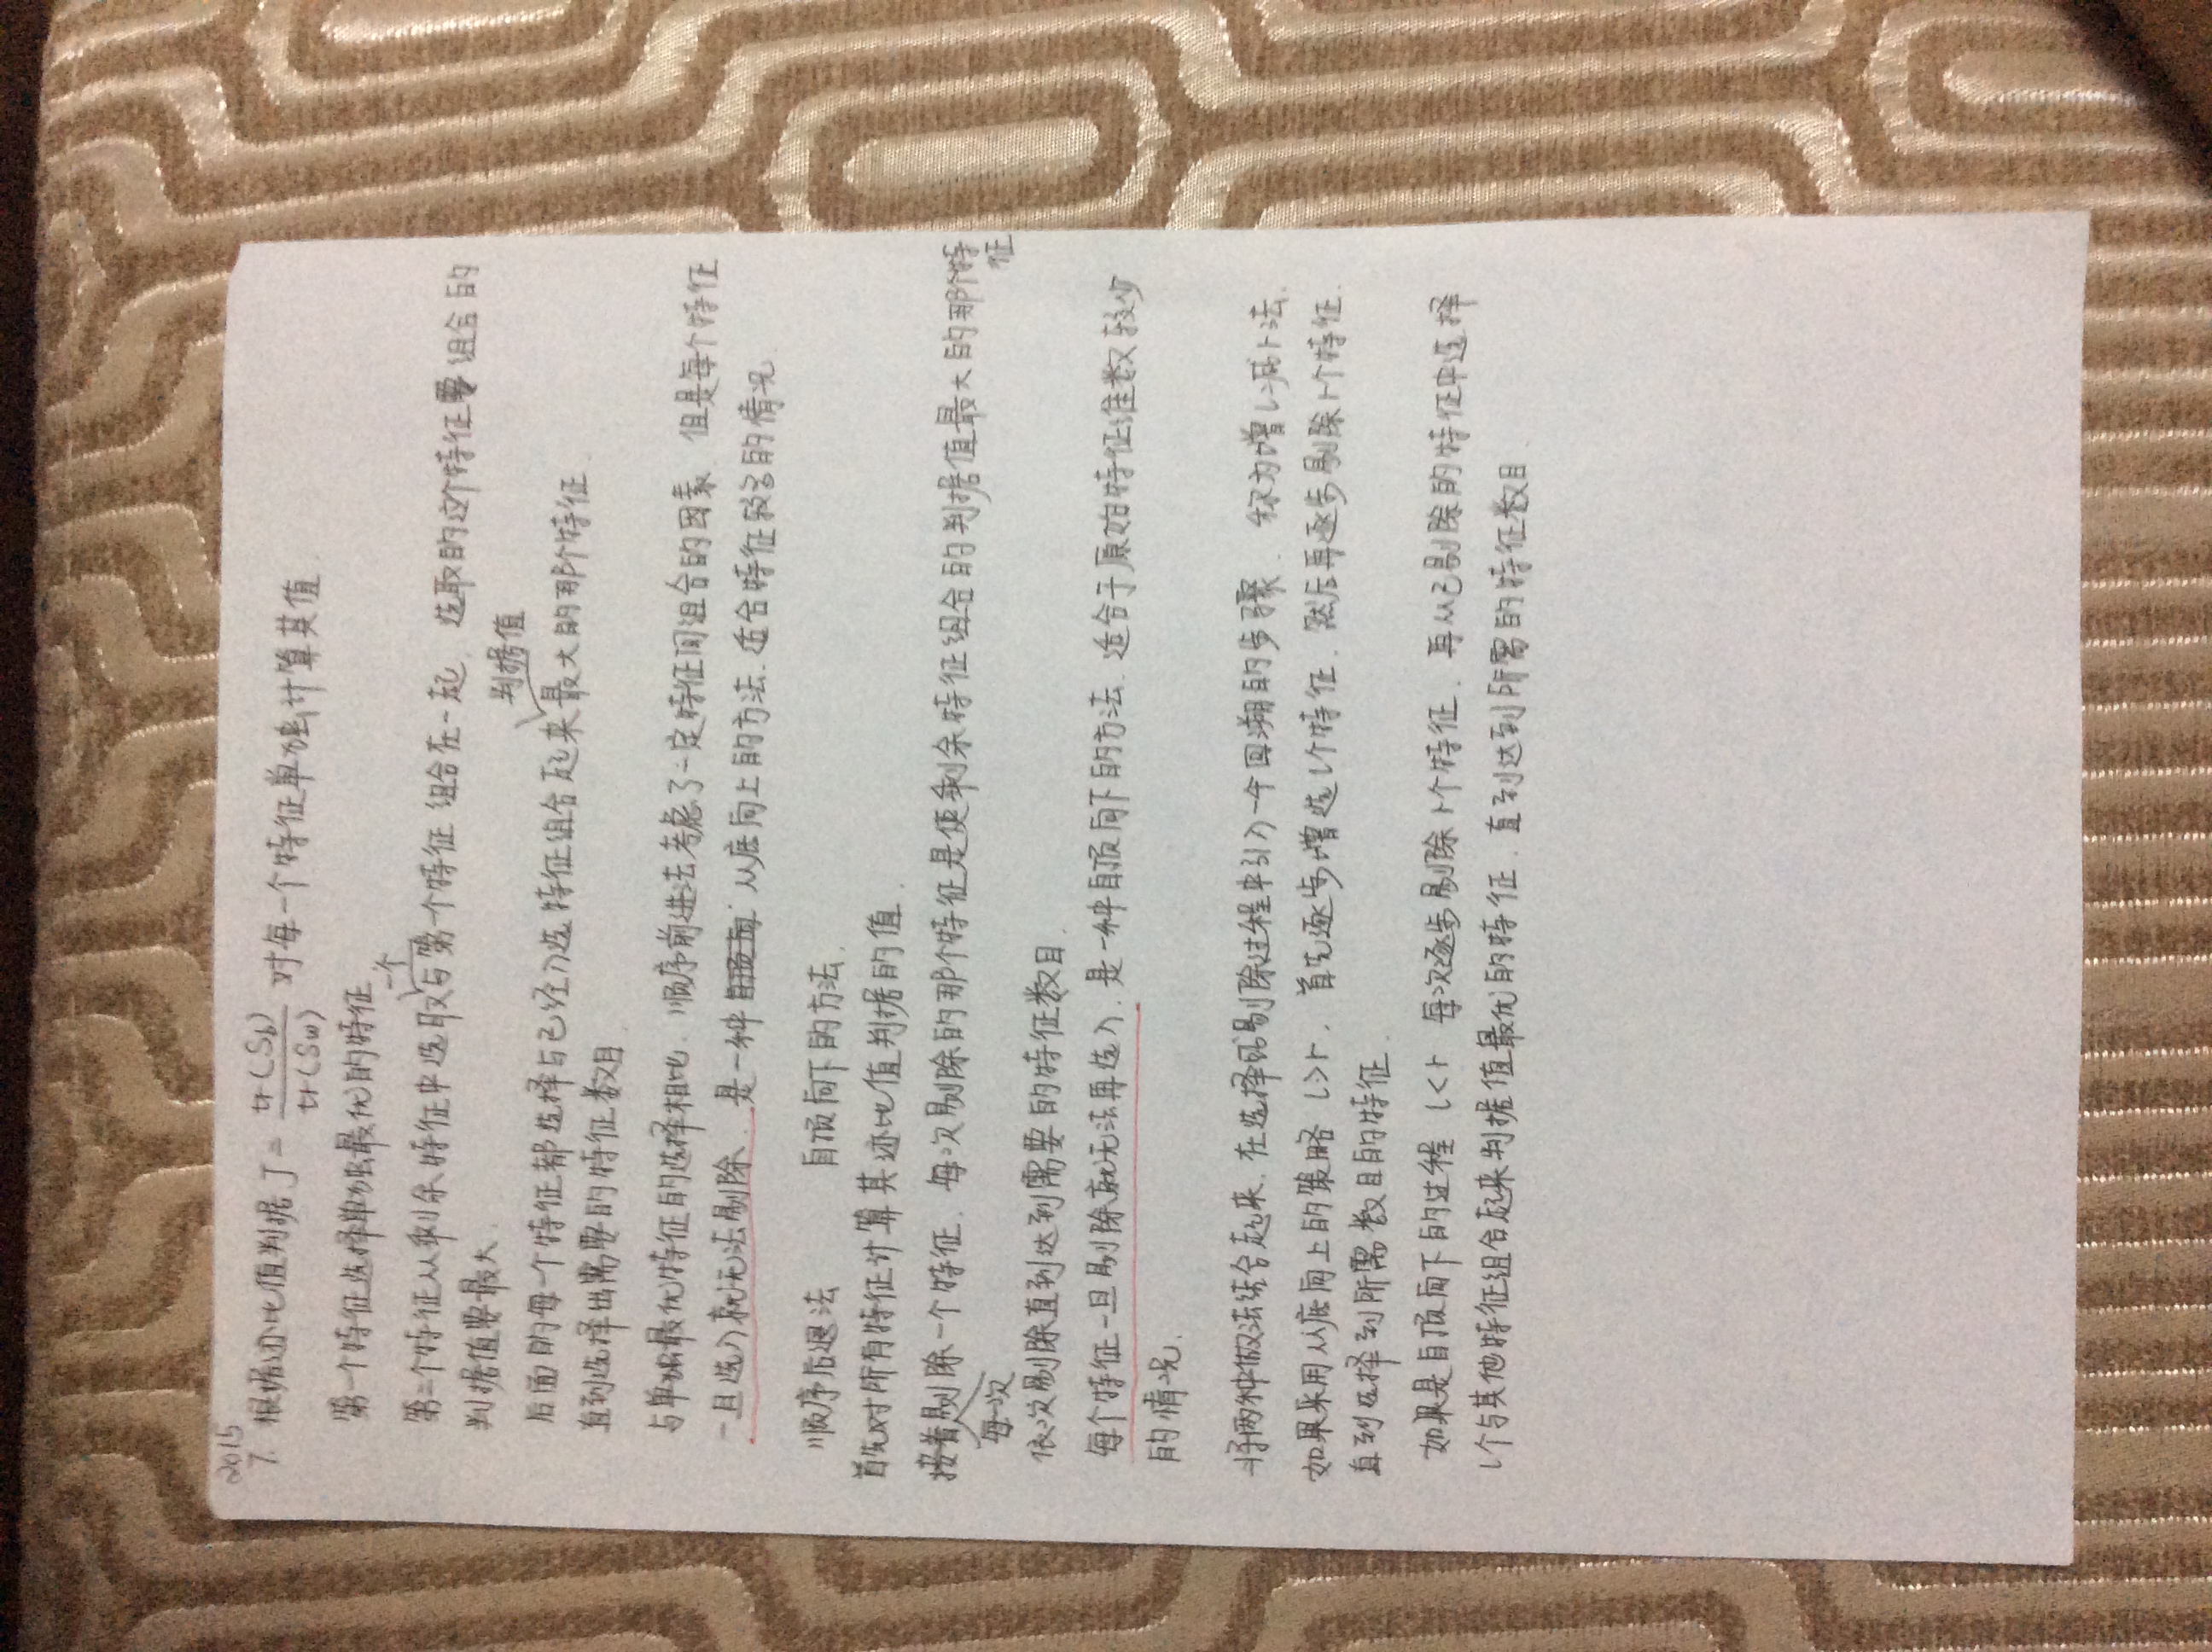 2015
7. 根据迹比值判据 J = tr(Sb)/tr(Sw) 对每一个特征单独计算其值.
第一个特征选择单独最优的特征
第二个特征从剩余特征中选取一个与第一个特征组合在一起. 选取的这个特征要组合的
判据值要最大.
后面的每一个特征都选择与已经入选特征组合起来判据值最大的那个特征.
直到选择出需要的特征数目
与单独最优特征的选择相比. 顺序前进法考虑了一定特征间组合的因素. 但是每个特征
一旦选入就无法剔除. 是一种 从底向上的方法. 适合特征较多的情况.
顺序后退法 自顶向下的方法
首先对所有特征计算其迹比值判据的值.
每次剔除一个特征. 每次剔除的那个特征是使剩余特征组合的判据值最大的那个特征
依次剔除直到达到需要的特征数目.
每个特征一旦剔除就无法再选入. 是一种自顶向下的方法. 适合于原始特征维数较少
的情况.
将两种做法结合起来. 在选择或剔除过程中引入一个回溯的步骤. 称为增l减r法.
如果采用从底向上的策略 l>r. 首先逐步增选l个特征. 然后再逐步剔除r个特征.
直到选择到所需数目的特征.
如果是自顶向下的过程 l<r 每次逐步剔除r个特征. 再从已剔除的特征中选择
l个与其他特征组合起来判据值最优的特征. 直到达到所需的特征数目.